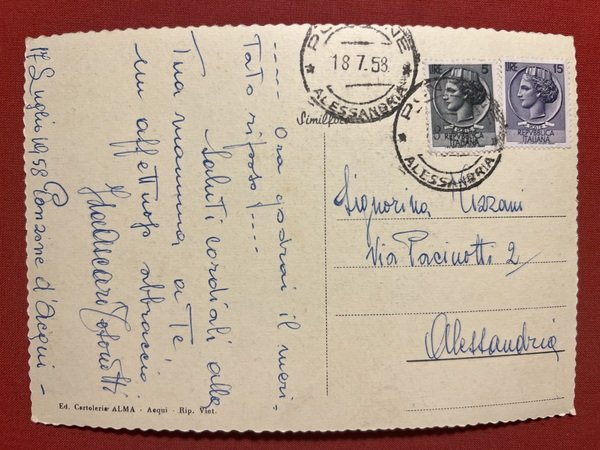 ..... Ora godrai il meri-
tato riposo!....
Saluti cordiali alla
Tua mamma a Te,
un affettuoso abbraccio
17 Luglio 1958 Ponzone d'Acqui -
Ed. Cartoleria ALMA - Acqui - Rip. Viet.
18.7.58
ALESSANDRIA
ALESSANDRIA
LIRE 5
REPUBBLICA
ITALIANA
LIRE 15
REPUBBLICA
ITALIANA
Signorina Mizzani
Via Pacinotti 2
Alessandria